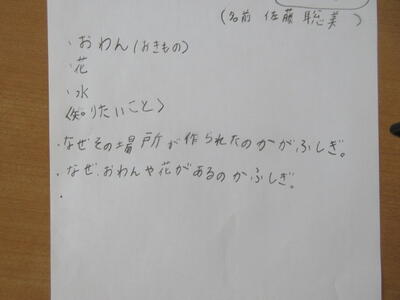 (名前 佐藤聡美)
・おわん(おきもの)
・花
・水
〈知りたいこと〉
・なぜその場所が作られたのかがふしぎ。
・なぜ、おわんや花があるのかふしぎ。
・